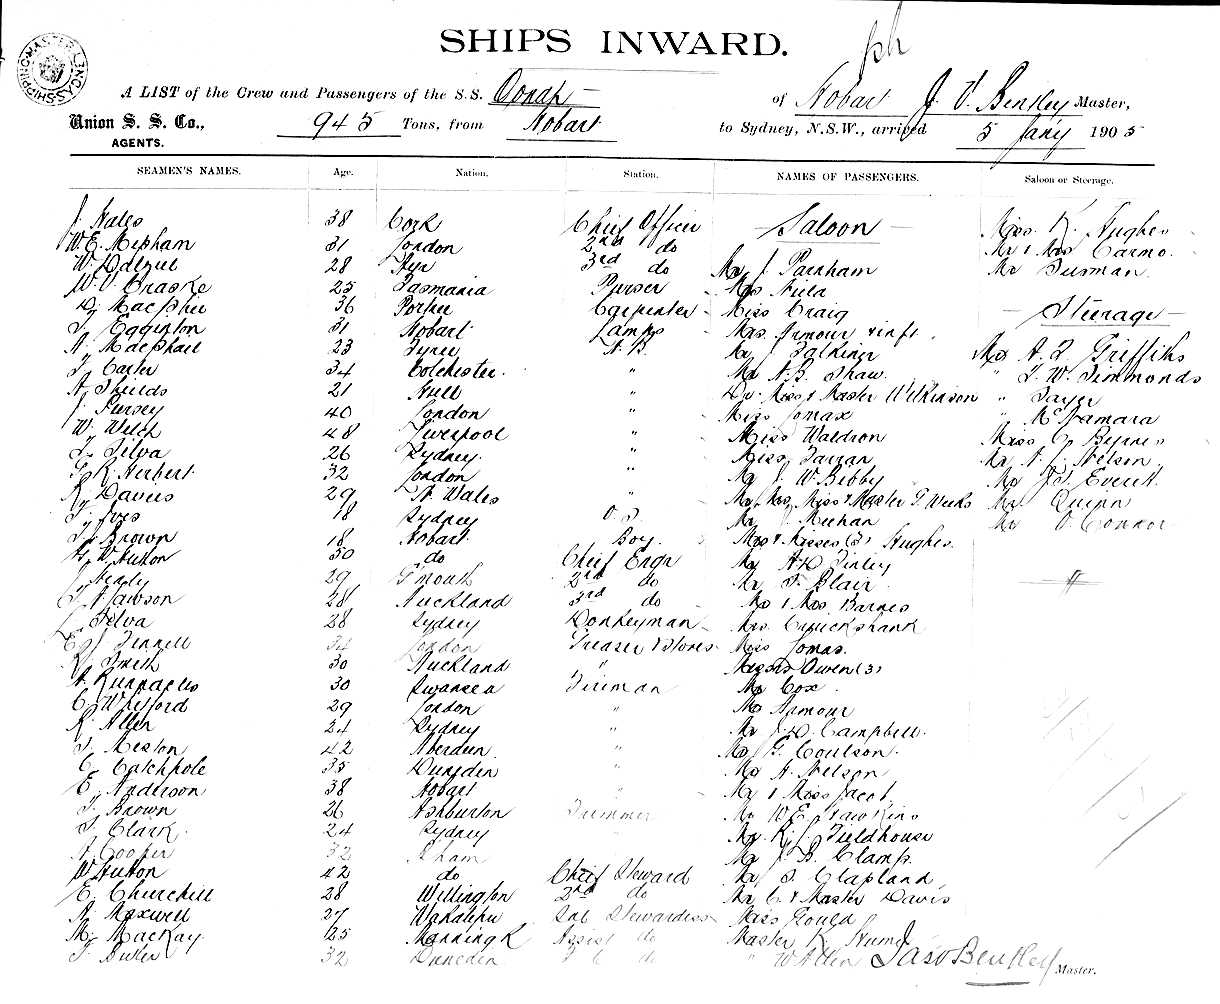 SHIPPING MASTER
SHIPS INWARD.
A LIST of the Crew and Passengers of the S.S. Oonah of Hobart J. V. Bentley Master,
Union S. S. Co., 945 Tons, from Hobart to Sydney, N.S.W., arrived 5 Jany 1905
AGENTS.
SEAMEN'S NAMES. Age. Nation. Station. NAMES OF PASSENGERS. Saloon or Steerage.
J. Hales 38 Cork Chief Officer
W. E. Mepham 31 London 2nd do
W. Dalziel 28 Ayr 3rd do
W. V. Craske 25 Tasmania Purser
D. Macphie 36 Carpenter
T. Egginton 31 Hobart Lamps
A. Macphail 23 Tyree A. B.
T. Carter 34 Colchester "
A. Shields 21 Hull "
J. Pursey 40 London "
W. Welch 48 Liverpool "
T. Silva 26 Sydney "
G. R. Herbert 32 London "
R. Davies 29 N. Wales "
T. Ives 18 Sydney O. S.
T. Brown 18 Hobart Boy.
G. W. Hutton 50 do Chief Engr
J. Healy 29 G'mouth 2nd do
T. A. Lawson 28 Auckland 3rd do
L. Silva 28 Sydney Donkeyman
Fennell 34 London Greaser & Stores
R. Smith 30 Auckland "
A. 30 Swansea Fireman
C. Whitford 29 London "
R. Allen 24 Sydney "
T. Meston 42 Aberdeen "
C. Catchpole 35 Dunedin "
E. Anderson 38 Hobart "
T. Brown 26 Ashburton Trimmer
T. Clark 24 Sydney "
A. Cooper 32
W. Hutton 42 do Chief Steward
E. Churchill 28 Wellington 2nd do
A. Maxwell 27 Stewardess
M. MacKay 25 Assist do
T. Butler 32 Dunedin
Saloon
Mr J. Parnham
Mrs Field
Miss Craig
Mrs Armour & inft
Mr J. Falkiner
Mr A. B. Shaw
Dr. Miss & Master Wilkinson
Miss Lomax
Miss Waldron
Miss Farran
Mr J. W. Bibby
Mr, Mrs, Miss & Master T. Weeks
Mr J. Meehan
Mrs & Misses (3) Hughes
Mr A. D. Finley
Mr T. Blair
Mr & Mrs Barnes
Mrs Cruickshank
Miss Lomas
Messrs Owen (3)
Mr Cox
Mr Armour
Mr J. D. Campbell
Mr G. Coulson
Mr A. Nelson
Mr & Miss Jacob
Mr W. E. Hawkins
Mr R. J. Fieldhouse
Mr J. B. Clamp
Mr T. Clapland
Mr C. & Master Davis
Miss Gould
Master R. Hume
" W Allen
Miss K. Hughes
Mr & Mrs Carmo
Mr Susman
Steerage
Mr A. L. Griffiths
" T. W. Simmonds
" Sayer
" McNamara
Miss C. Byrnes
Mr A. J. Nelson
Mr J. T. Everett
Mr Quinn
Mr O'Connor
Jas V Bentley Master.